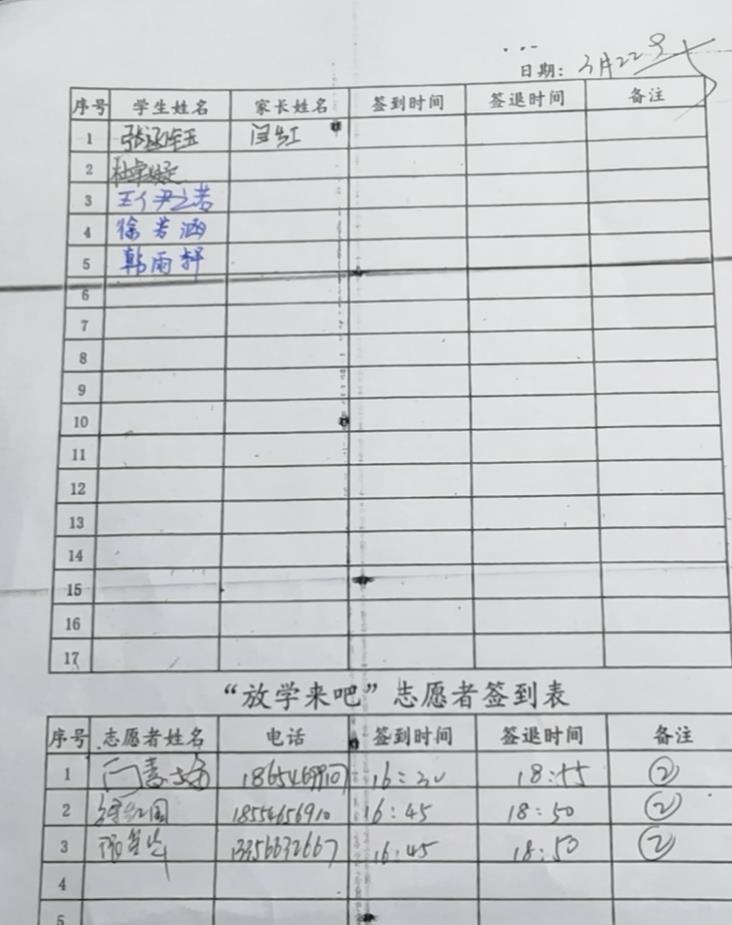 日期: 3月22号
序号 学生姓名 家长姓名 签到时间 签退时间 备注
1 张涵钰
2
3 王尹之若
4 徐若涵
5 韩雨轩
6
7
8
9
10
11
12
13
14
15
16
17
“放学来吧”志愿者签到表
序号 志愿者姓名 电话 签到时间 签退时间 备注
1 16:30 18:55 ②
2 18554656910 16:45 18:50 ②
3 13356632667 16:45 18:50 ②
4
5